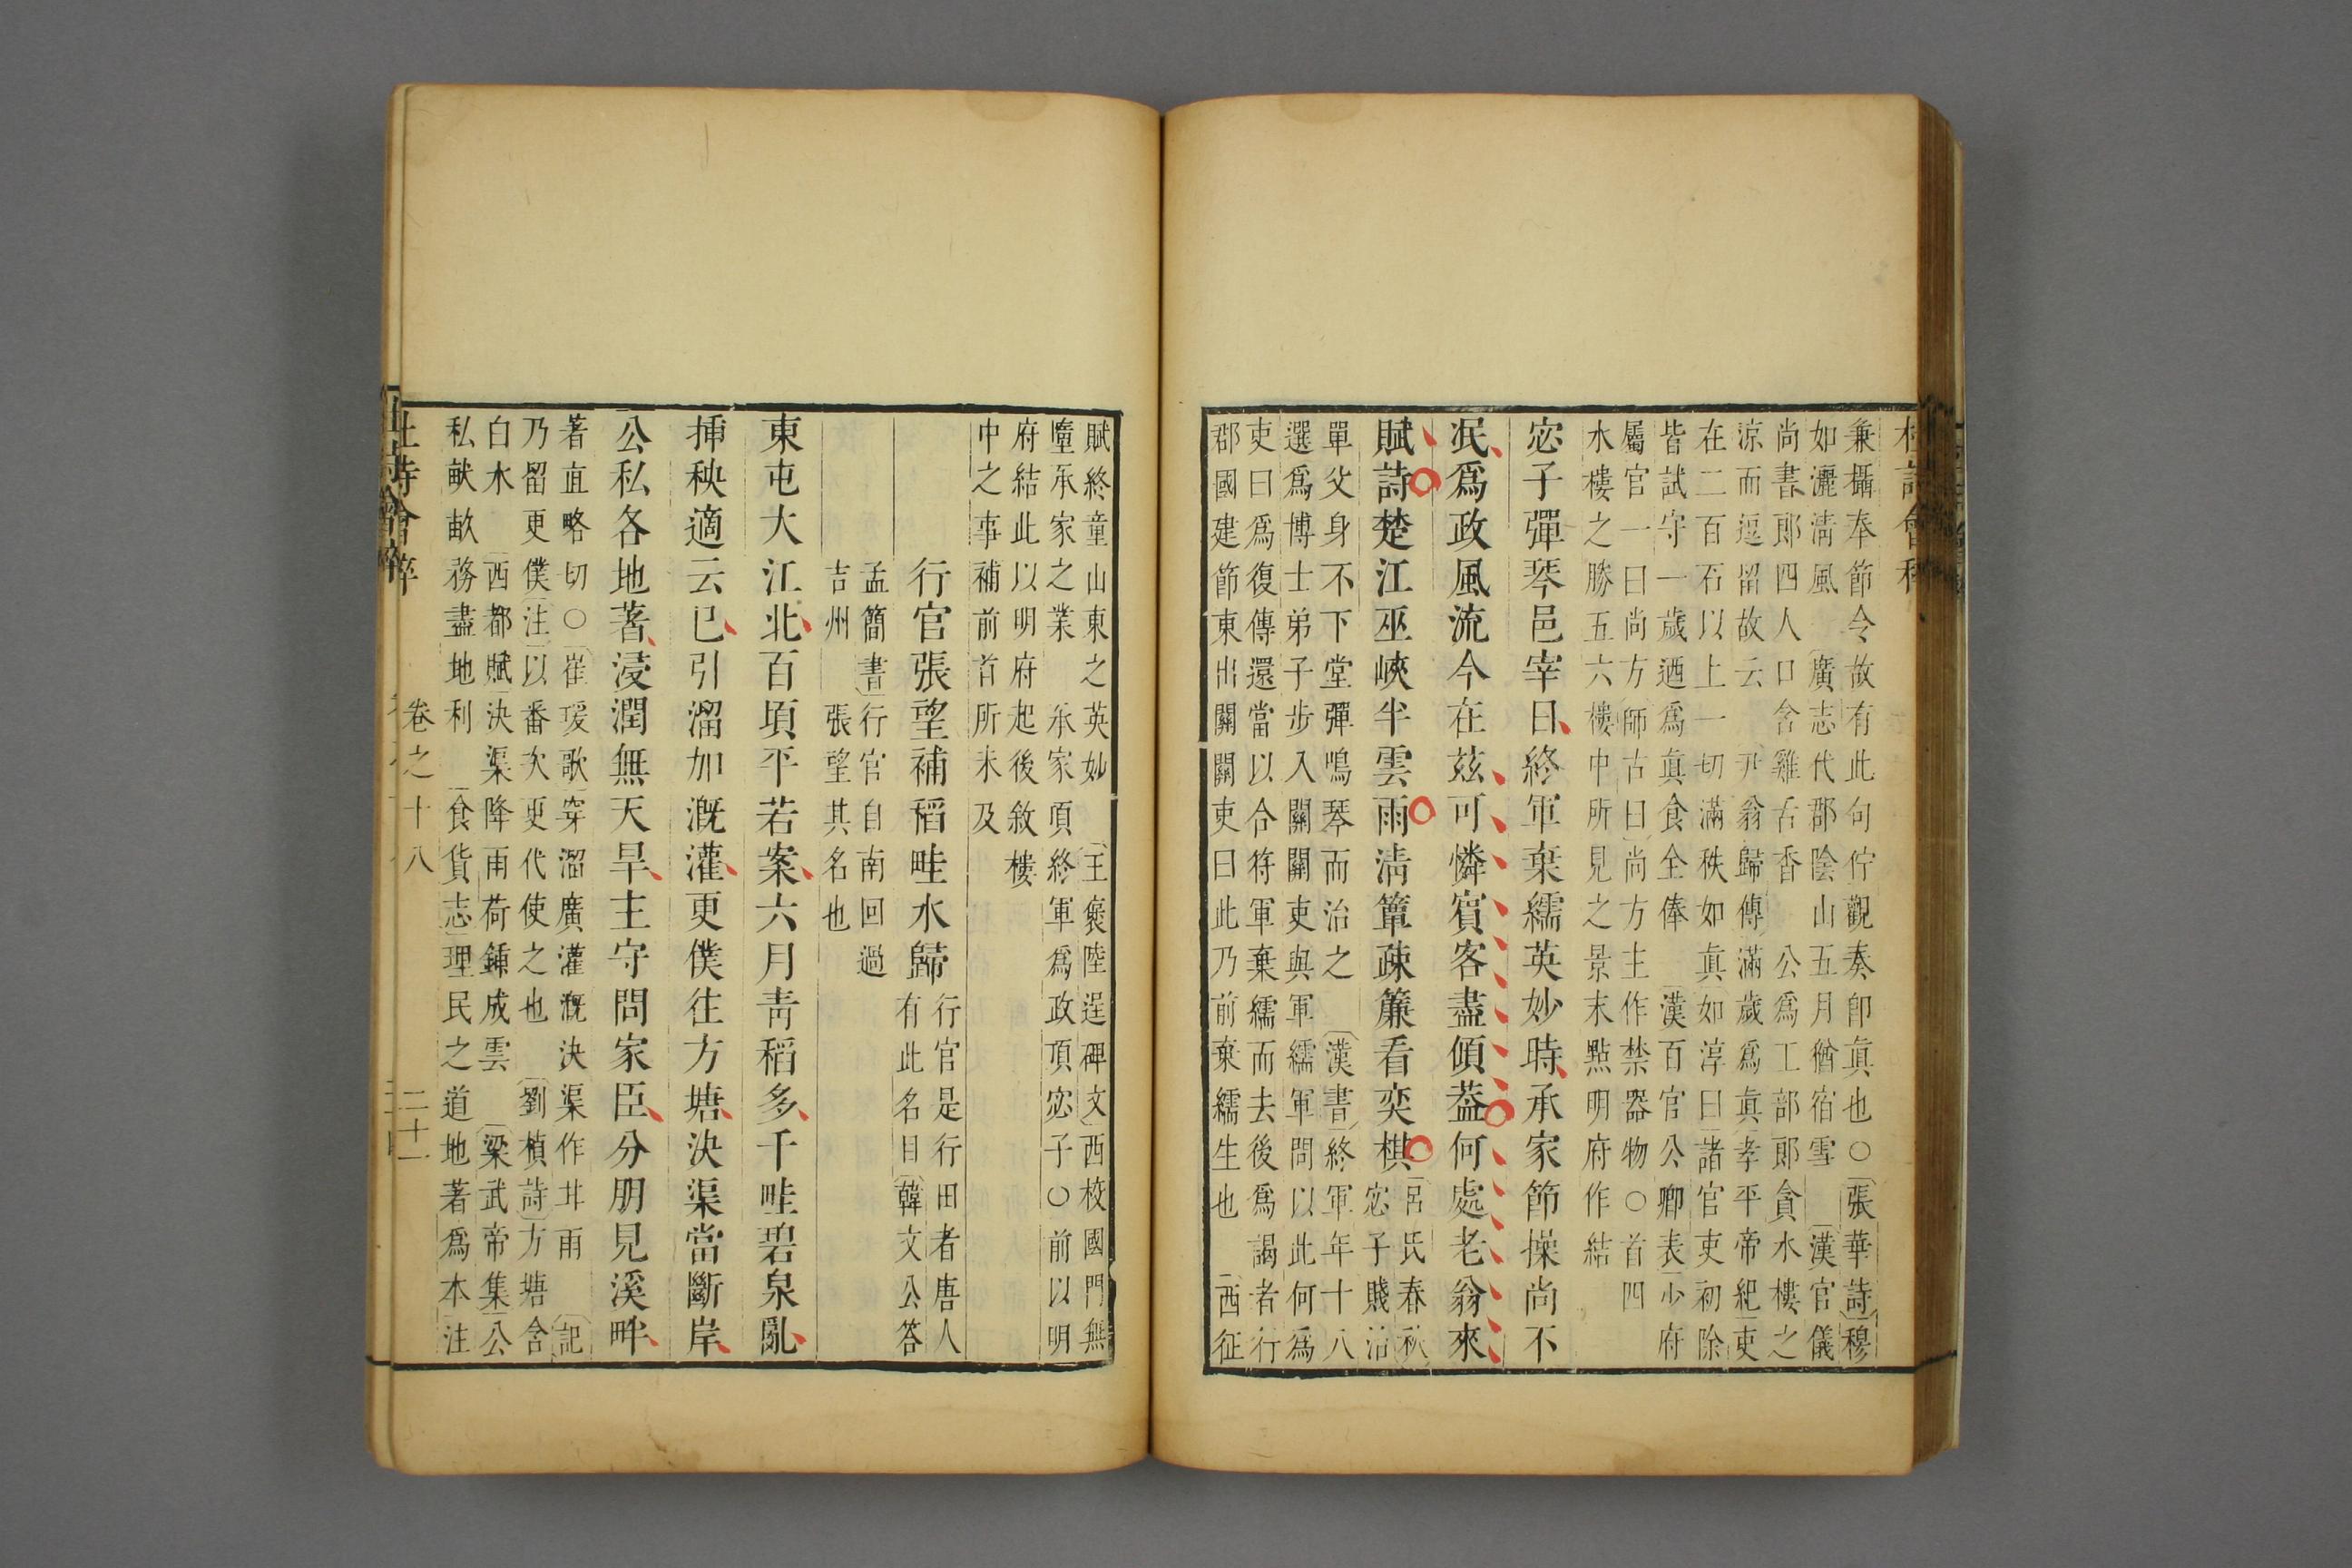 杜詩會稡
兼攝奉節令故有此句佇觀奏卽眞也○張華詩穆
如灑淸風　廣志代郡陰山五月猶宿雪　漢官儀
尚書郎四人口含雞舌香　公爲工部郎貪水樓之
涼而逗留故云　尹翁歸傳滿歲爲眞孝平帝紀吏
在二百石以上一切滿秩如眞如淳曰諸官吏初除
皆試守一歲迺爲眞食全俸　漢百官公卿表少府
屬官一曰尚方師古曰尚方主作禁器物○首四
水樓之勝五六樓中所見之景末點明府作結
宓子彈琴邑宰日終軍棄繻英妙時承家節操尚不
泯爲政風流今在玆可憐賓客盡傾葢何處老翁來
賦詩楚江巫峽半雲雨淸簟疎簾看奕棋
呂氏春秋
宓子賤治
單父身不下堂彈鳴琴而治之　漢書終軍年十八
選爲博士弟子步入關關吏與軍繻軍問以此何爲
吏曰爲復傳還當以合符軍棄繻而去後爲謁者行
郡國建節東出關關吏曰此乃前棄繻生也　西征
賦終童山東之英妙　王襃陸逞碑文西校國門無
墮承家之業　承家項終軍爲政項宓子○前以明
府結此以明府起後敘樓
中之事補前首所未及
行官張望補稻畦水歸
行官是行田者唐人
有此名目韓文公答
孟簡書行官自南回過
吉州　張望其名也
東屯大江北百頃平若案六月靑稻多千畦碧泉亂
揷秧適云已引溜加漑灌更僕往方塘決渠當斷岸
公私各地著浸潤無天旱主守問家臣分朋見溪畔
著直略切○崔瑗歌穿溜廣灌漑決渠作井雨　記
乃留更僕注以番次更代使之也　劉楨詩方塘含
白水　西都賦決渠降雨荷鍤成雲　梁武帝集公
私畎畝務盡地利　食貨志理民之道地著爲本注
卷之十八
二十一